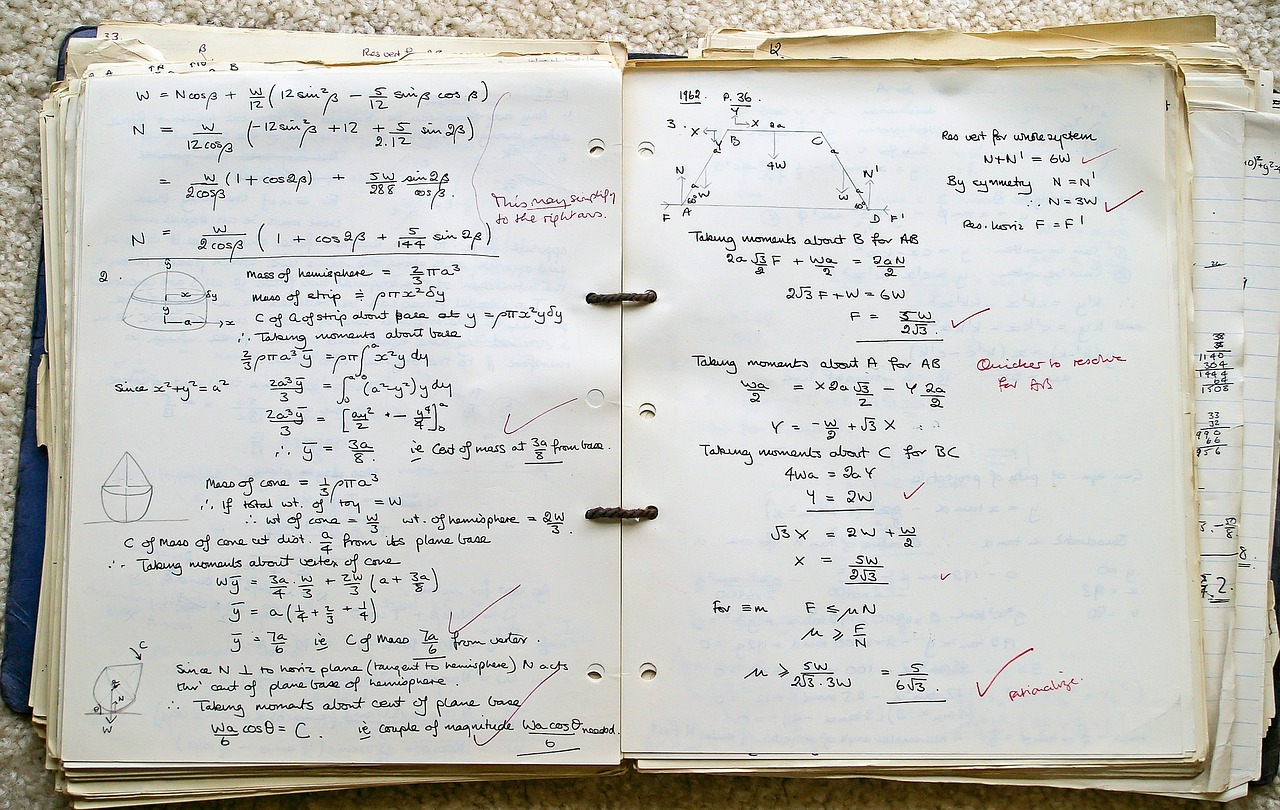 33.
β
Res vert
B
W = Ncosβ + W/12 (12sin²β − 5/12 sinβ cosβ)
N = W/12cosβ (−12sin²β + 12 + 5/2.12 sin2β)
= W/2cosβ (1 + cos2β) + 5W/288 sin2β/cosβ.
This may simplify
to the right ans.
N = W/2cosβ (1 + cos2β + 5/144 sin2β)
2.
y
x
δy
y
a
x
Mass of hemisphere = 2/3 πa³
Mass of strip ≑ ρπx²δy
C of G of strip about base at y = ρπx²yδy
∴ Taking moments about base
2/3 ρπa³ȳ = ρπ∫₀ᵃ x²y dy
Since x²+y²=a²
2a³ȳ/3 = ∫₀ᵃ (a²−y²)y dy
2a³ȳ/3 = [ay²/2 − y⁴/4]₀ᵃ
∴ ȳ = 3a/8 ie Cent of mass at 3a/8 from base.
Mass of cone = 1/3 ρπa³
∴ If total wt. of toy = W
∴ wt of cone = W/3 wt. of hemisphere = 2W/3.
C of Mass of cone at dist. a/4 from its plane base
∴ Taking moments about vertex of cone
Wȳ = 3a/4 . W/3 + 2W/3 (a + 3a/8)
ȳ = a(1/4 + 2/3 + 1/4)
ȳ = 7a/6 ie C of Mass 7a/6 from vertex.
C
θ
N
W
Since N ⊥ to horiz plane (tangent to hemisphere) N acts
thro' cent of plane base of hemisphere.
∴ Taking moments about cent of plane base
Wa/6 cosθ = C. ie couple of magnitude Wa cosθ/6 needed.
12.
1962. P. 36.
3.
Y
X
2a
X
B
C
Y
a
a
4W
N
a
W
60°
N'
a
W
60°
F
A
D
F'
Res vert for whole system
N+N' = 6W
By symmetry N = N'
∴ N = 3W
Res. horiz F = F'
Taking moments about B for AB
2a √3/2 F + Wa/2 = 2aN/2
2√3 F + W = 6W
F = 5W/2√3.
Taking moments about A for AB
Quicker to resolve
for AB
Wa/2 = X 2a √3/2 − Y 2a/2
Y = −W/2 + √3 X
Taking moments about C for BC
4Wa = 2aY
Y = 2W
√3 X = 2W + W/2
X = 5W/2√3
For ≡m F ≤ μN
μ ≥ F/N
μ ≥ 5W/2√3.3W = 5/6√3.
rationalize.
38
38
1140
304
1444
64
1508
33
32
990
66
956